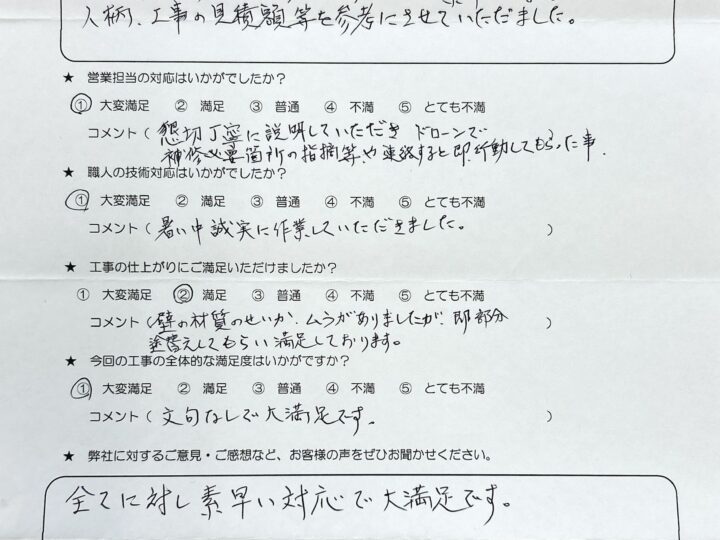 人柄、工事の見積額等を参考にさせていただました。
★ 営業担当の対応はいかがでしたか？
① 大変満足 ② 満足 ③ 普通 ④ 不満 ⑤ とても不満
コメント（ 懇切丁寧に説明していただき ドローンで
補修必要箇所の指摘等や連絡すると即行動してもらった事.
★ 職人の技術対応はいかがでしたか？
① 大変満足 ② 満足 ③ 普通 ④ 不満 ⑤ とても不満
コメント（ 暑い中誠実に作業していただきました。 ）
★ 工事の仕上がりにご満足いただけましたか？
① 大変満足 ② 満足 ③ 普通 ④ 不満 ⑤ とても不満
コメント（ 壁の材質のせいか、ムラがありましたが、即部分 ）
塗替えしてもらい満足しております。
★ 今回の工事の全体的な満足度はいかがですか？
① 大変満足 ② 満足 ③ 普通 ④ 不満 ⑤ とても不満
コメント（ 文句なしで大満足です。 ）
★ 弊社に対するご意見・ご感想など、お客様の声をぜひお聞かせください。
全てに対し素早い対応で大満足です。